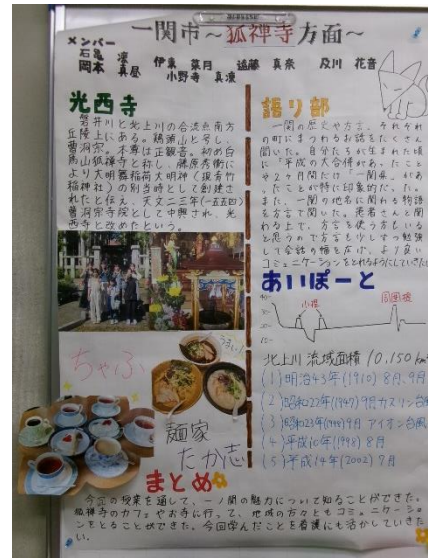 一関市〜狐禅寺方面〜
メンバー
石亀 凛 伊東 菜月 遠藤 真奈 及川 花音
岡本 真昼 小野寺 真凜
光西寺
磐井川と北上川の合流点南方
丘陵上にある。鶏頭山と号し、
曹洞宗。本尊は正観音。初め白
馬山狐禅寺と称し、藤原秀衡に
より大明舞稲荷大明神(現青竹
稲神社)の別当時として創建さ
れたと伝え、天文二三年(一五五四)
曹洞宗寺院として中興され、光
西寺と改めたという。
語り部
一関の歴史や方言、それぞれ
の町にまつわるお話をたくさん
聞いた。自分たちが生まれた頃
に「平成の大合併があったこと
や2ヶ月間だけ「一関県」があ
ったことが特に印象的だった。
また、一関の地名に関わる物語
を方言で聞いた。患者さんと関
わる上で、方言を使う方もいる
と思うので方言も少しずつ勉強
して会話の幅を広げ、より良い
コミュニケーションをとれるようにしていきたい
あいぽーと
小堤
周囲堤
北上川 流域面積 10,150km²
(1)明治43年(1910)8月、9月
(2)昭和22年(1947)9月カスリン台風
(3)昭和23年(1948)9月アイオン台風
(4)平成10年(1998)8月
(5)平成14年(2002)7月
ちゃふ
うまい!
麺家
たか志
まとめ
今回の授業を通して、一ノ関の魅力について知ることができた。
狐禅寺のカフェやお寺に行って、地域の方々ともコミュニケーショ
ンをとることができた。今回学んだことを看護にも活かしていきた
い。